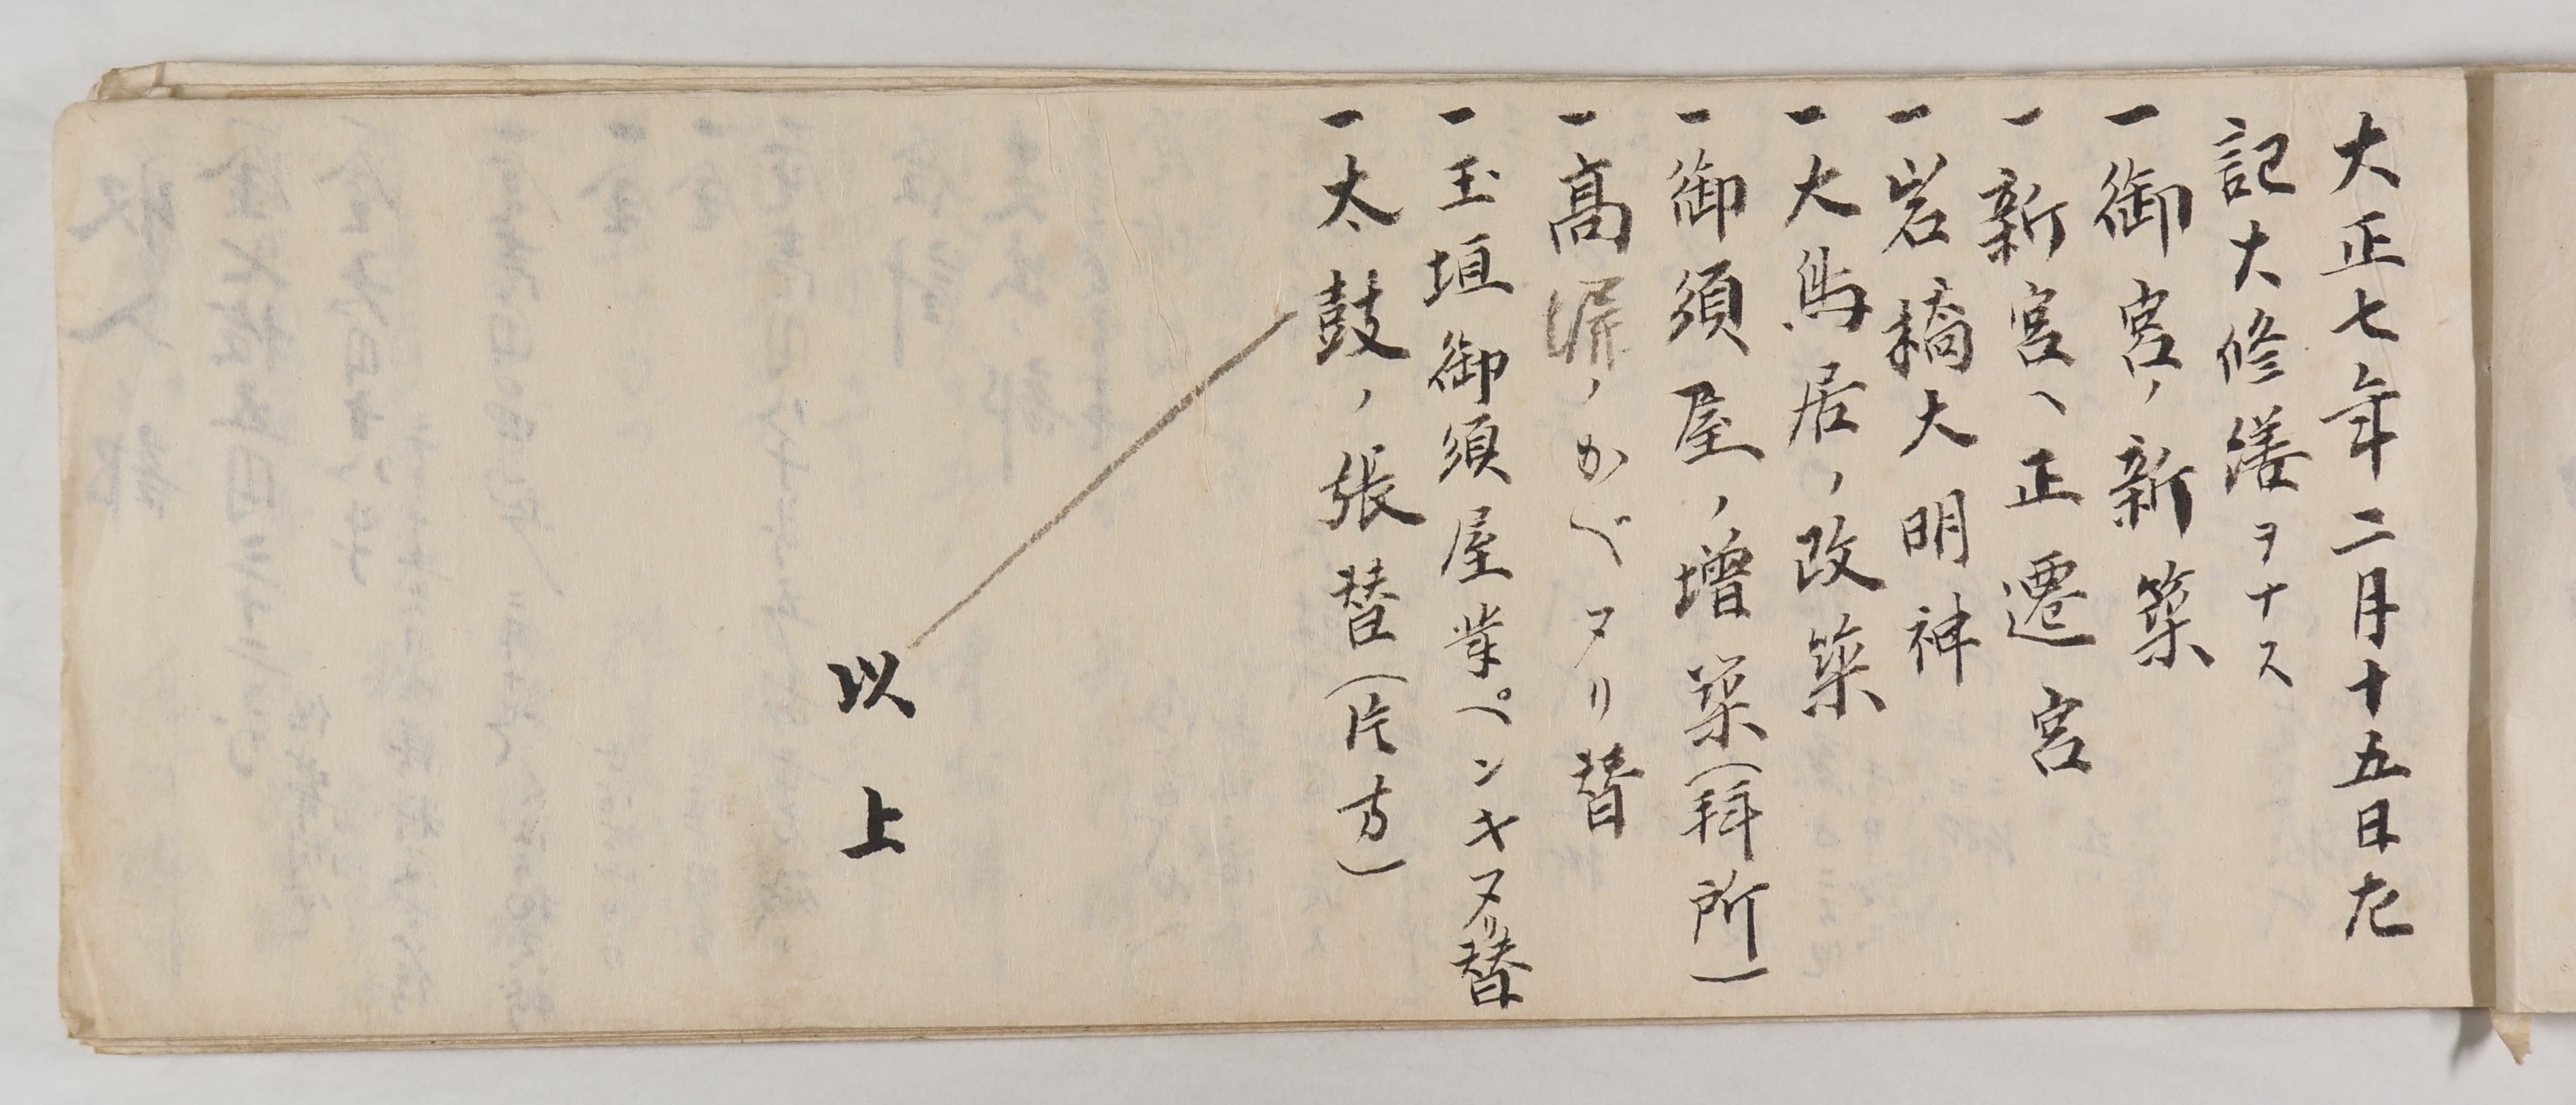 大正七年二月十五日左
記大修繕ヲナス
一御宮ノ新築
一新宮ヘ正遷宮
一岩橋大明神
一大鳥居ノ改築
一御須屋ノ増築(拝所)
一高塀ノかべヌリ替
一玉垣御須屋業ペンキヌリ替
一太鼓ノ張替(片方)
以上